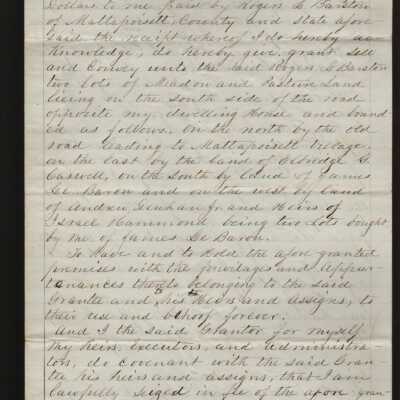 Dollars to me paid by Rogers L. Barston
of Mattapoisett, County and State afore-
said the receipt whereof I do hereby ac-
knowledge, do hereby give, grant, sell
and Convey unto the said Rogers L. Barston
two Lots of Meadow and Pasture Land
lieing on the South side of the road
opposite my dwelling House and bound-
ed as follows. On the north by the old
road leading to Mattapoisett Village,
on the East by the land of Eldredge G.
Caswell, on the South by Land of James
Le Baron and on the west by Land
of Andrew Jr. and Heirs of
Israel Hammond being two Lots bought
by me of James Le Baron.
To Have and to Hold the afore granted
premises with the priveleges and appur-
tenances thereto belonging to the said
Grantee and his Heirs and assigns, to
their use and behoof forever.
And I the said Grantor for myself
my heirs, Executors, and administra-
tors, do covenant with the said Gran-
tee his heirs and assigns, that I am
Lawfully Seized in fee of the afore gran-